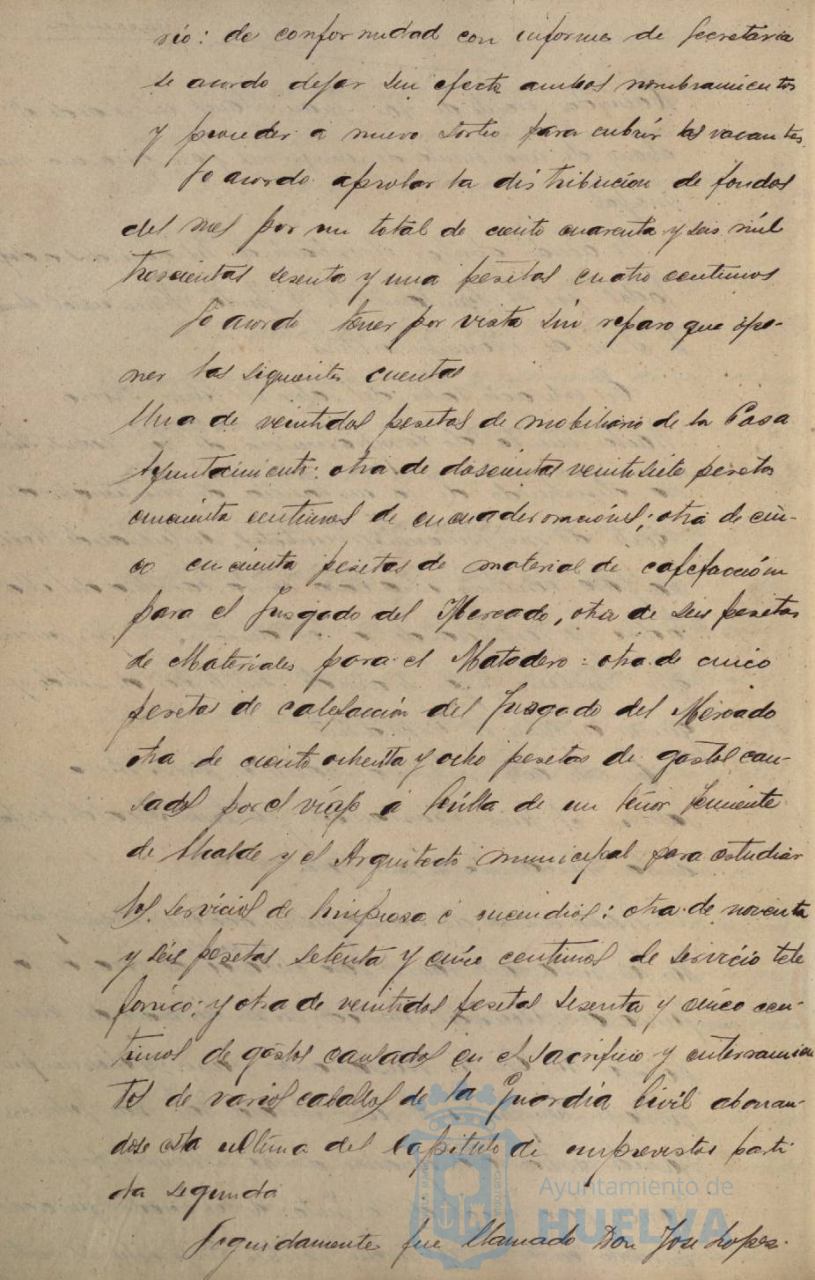 rio: de conformidad con informe de Secretaria
se acordo dejar sin efecto ambos nombramientos
y proceder a nuevo sorteo para cubrir las vacantes.
Se acordo aprobar la distribucion de fondos
del mes por un total de ciento cuarenta y seis mil
trescientas sesenta y una pesetas cuatro centimos
Se acordo tener por vista sin reparo que opo-
ner las siguientes cuentas
Una de veintidos pesetas de mobiliario de la Casa
Ayuntamiento: otra de doscientas veintisiete pesetas
cincuenta centimos de encuadernaciones; otra de cin-
co cincuenta pesetas de material de calefacción
para el Juzgado del Mercado, otra de seis pesetas
de Materiales para el Matadero: otra de cinco
pesetas de calefacción del Juzgado del Mercado
otra de ciento ochenta y ocho pesetas de gastos cau-
sados por el viaje a Sevilla de un Señor Teniente
de Alcalde y el Arquitecto municipal para estudiar
los servicios de limpieza é incendios: otra de noventa
y seis pesetas setenta y cinco centimos de servicio tele
fonico; y otra de veintidos pesetas sesenta y cinco cen-
timos de gastos causados en el sacrificio y enterramien
tos de varios caballos de la Guardia Civil abonan-
dose esta ultima del Capitulo de imprevistos parti
da segunda
Seguidamente fue llamado Don Jose Lopez
Ayuntamiento de
HUELVA